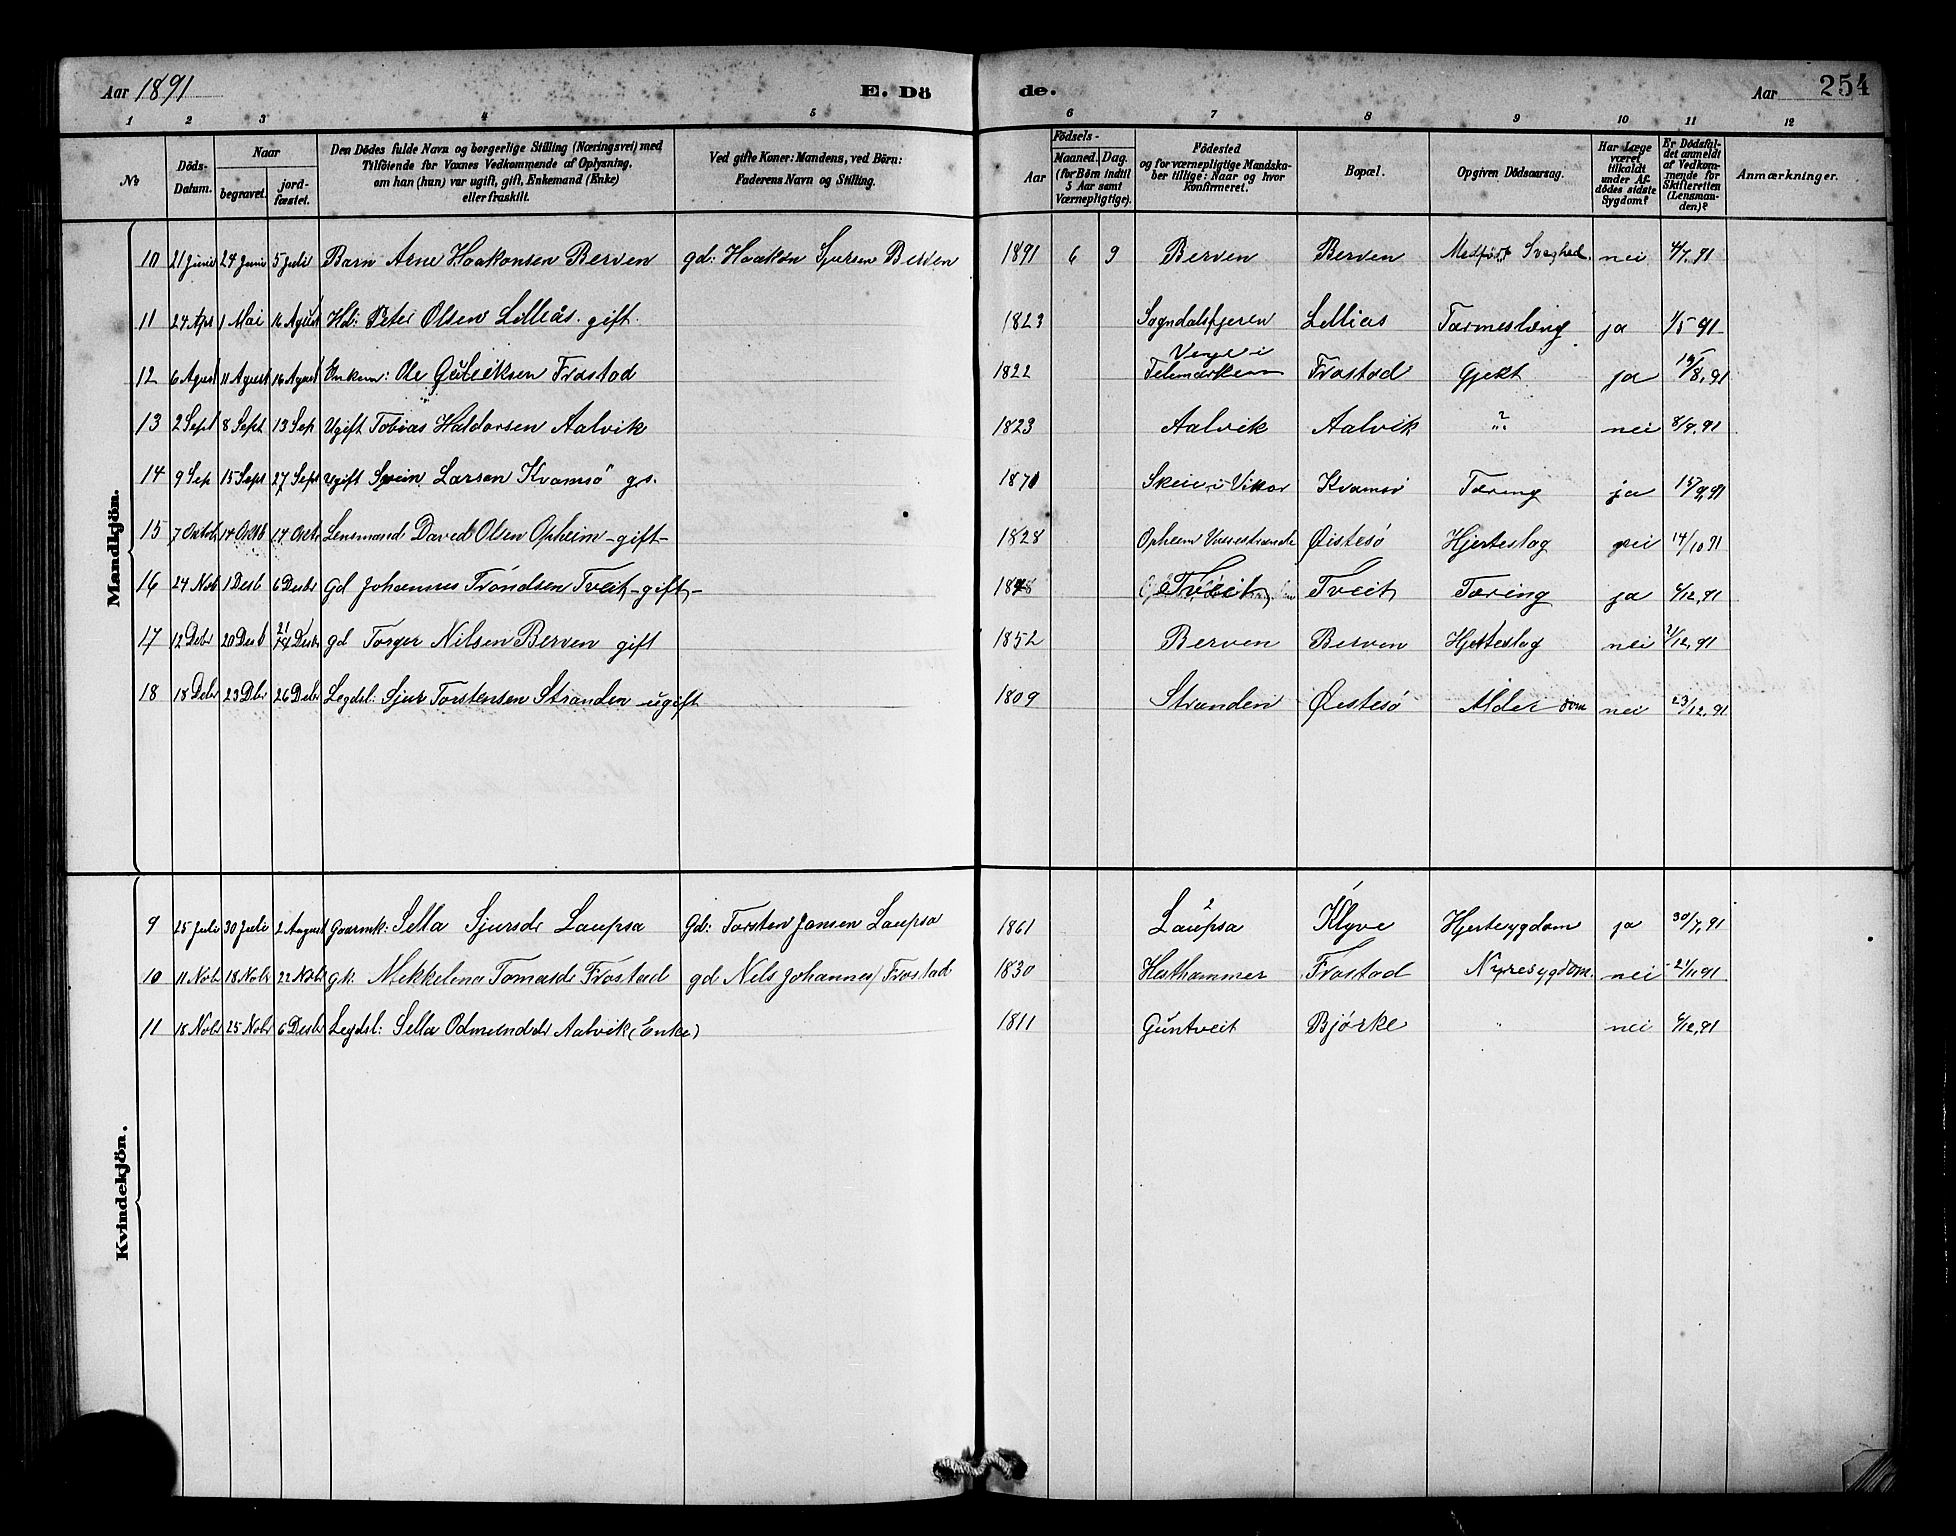 Aar 1891 E. Dö de. Aar 254
1 2 3 4 5 6 7 8 9 10 11 12
№ Döds-Datum. Naar begravet. jord-fæstet. Den Dödes fulde Navn og borgerlige Stilling (Næringsvei) med Tilföiende for Voxnes Vedkommende af Oplysning, om han (hun) var ugift, gift, Enkemand (Enke) eller fraskilt. Ved gifte Koner: Mandens, ved Börn: Faderens Navn og Stilling. Födsels- Aar Maaned. Dag. (for Börn indtil 5 Aar samt Værnepligtige). Födested og for værnepligtige Mandskaber tillige: Naar og hvor Konfirmeret. Bopæl. Opgiven Dödsaarsag. Har Læge været tilkaldt under Afdödes sidste Sygdom? Er Dödsfaldet anmeldt af Vedkommende for Skifteretten (Lensmanden)? Anmærkninger.
Mandkjön.
10 21 Junie 24 Junie 5 Juli Barn Arne Haakonsen Berven gd: Haakon Sjursen Berven 1891 6 9 Berven Berven Medfødt Svaghed. nei 4/7.91
11 24 Apr 1 Mai 16 Agust Hd: Peter Olsen Lilleås. gift. 1823 Sogndalsfjeren Lillias Tarmeslæng ja 1/5 91
12 6 Agust 11 Agust 16 Agust Enkem: Ole Guleiksen Frostad 1822 Telemarken Frostad Gjekt ja 10/8.91
13 2 Sept 8 Sept 13 Sep Ugift Tobias Haldorsen Aalvik 1823 Aalvik Aalvik ? nei 8/9.91
14 9 Sep 15 Sept 27 Sept Ugift Svein Larsen Kvamsö gs. 1871 Skeie i Vikør Kvamsö Tæring ja 15/9.91
15 7 Oktob 14 Oktb 17 Oktbr Lensmand David Olsen Opheim - gift - 1828 Opheim Øistesö Hjerteslag nei 14/10 91
16 24 Nob 1 Desb 6 Desbr Gd Johannes Tröndsen Tveit - gift - 1848 Tveit Tveit Tæring ja 6/12.91
17 12 Debr 20 Desb 21 Desbr gd Torger Nilsen Berven gift 1852 Berven Berven Hjerteslag nei /12.91
18 18 Debr 23 Dbr 26 Debr Legdsl: Sjur Torstensen Stranden ugift 1809 Stranden Øistesö Alderdom nei 23/12.91
Kvindekjön.
9 25 Juli 30 Juli 2 August Gaarmk: Sella Sjursdr Laupsa Gd: Torsten Jansen Laupsa 1861 Laupsa Klyve Hjertesygdom ja 30/7.91
10 11 Nobr 18 Nobr 22 Nobr gk: Mekkelena Tomasdr Frostad gd Nils Johannes/ Frostad 1830 Hesthammer Frostad Nyresygdom. nei 21/11 91
11 18 Nobr 25 Nobr 6 Desbr Legdsl: Sella Odmundsdr Aalvik (Enke) 1811 Guntveit Bjørke " nei 6/12.91